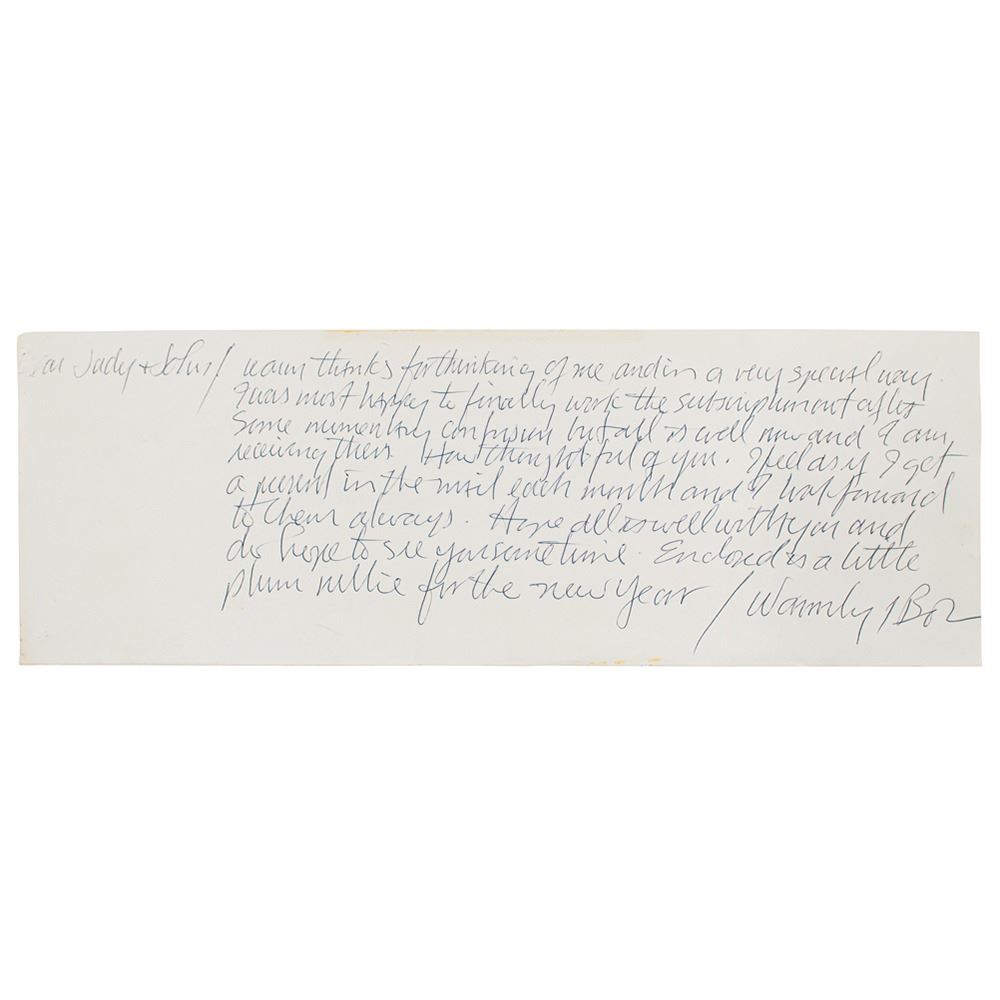 Dear Judy + John / warm thanks for thinking of me, and in a very special way.
I was most happy to finally work the subscription out after
some momentary confusion but all is well now and I am
receiving them. How thoughtful of you. I feel as if I get
a present in the mail each month and I look forward
to them always. Hope all is well with you and
do hope to see you sometime. Enclosed is a little
plum nellie for the new year / Warmly, Bob